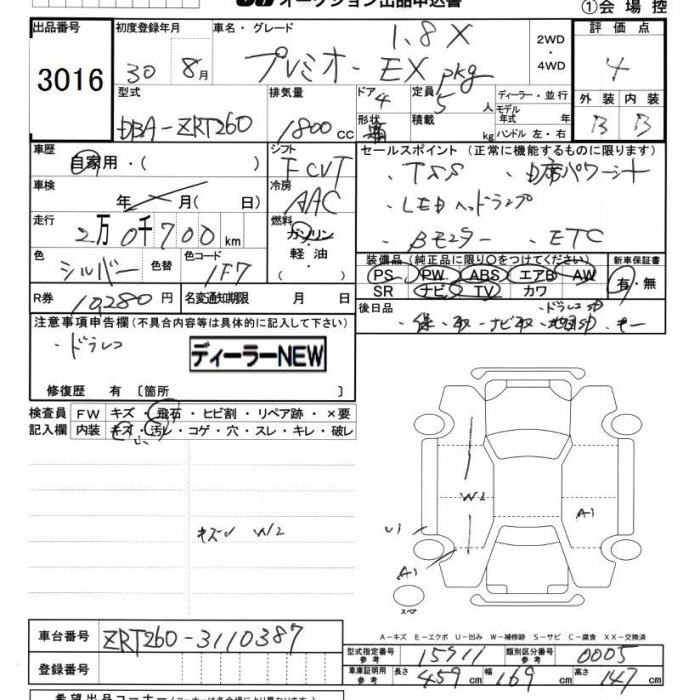 オークション出品申込書
①会場控
出品番号 初度登録年月 車名・グレード 評価点
3016 30 8月 プレミオ 1.8X EX pkg 2WD ・4WD 4
型式 排気量 ドア 定員 ディーラー・並行 外装 内装
DBA-ZRT260 1800cc 4 5人 モデル年式 年 B B
形状 積載 kg ハンドル 左・右
車歴 自家用・( ) シフト FCVT セールスポイント (正常に機能するものに限ります)
・TSS
車検 年 月( 日) 冷房 AAC ・LEDヘッドランプ
走行 2万0千700km 燃料 ガソリン・軽油 ・Bモニター ・ETC
( )
色 シルバー 色替 色コード 1F7 装備品 (純正品に限り○をつけてください) 新車保証書
PS PW ABS エアB AW 有・無
SR ナビ TV カワ
R券 10280円 名変通知期限 月 日 後日品
・ドラレコ
注意事項申告欄(不具合内容等は具体的に記入して下さい)
・ドラレコ
ディーラーNEW
修復歴 有 〔箇所 〕
検査員 FW キズ・飛石・ヒビ割・リペア跡・×要
記入欄 内装 キズ・汚レ・コゲ・穴・スレ・キレ・破レ
W2 A1
キズ W2 U1
A1
スペア
A－キズ E－エクボ U－凹み W－補修跡 S－サビ C－腐食 XX－交換済
車台番号 ZRT260-3110387
型式指定番号 参考 15911 類別区分番号 参考 0005
登録番号 車庫証明用 参考 長さ 459cm 幅 169cm 高さ 147cm
希望出品コーナー